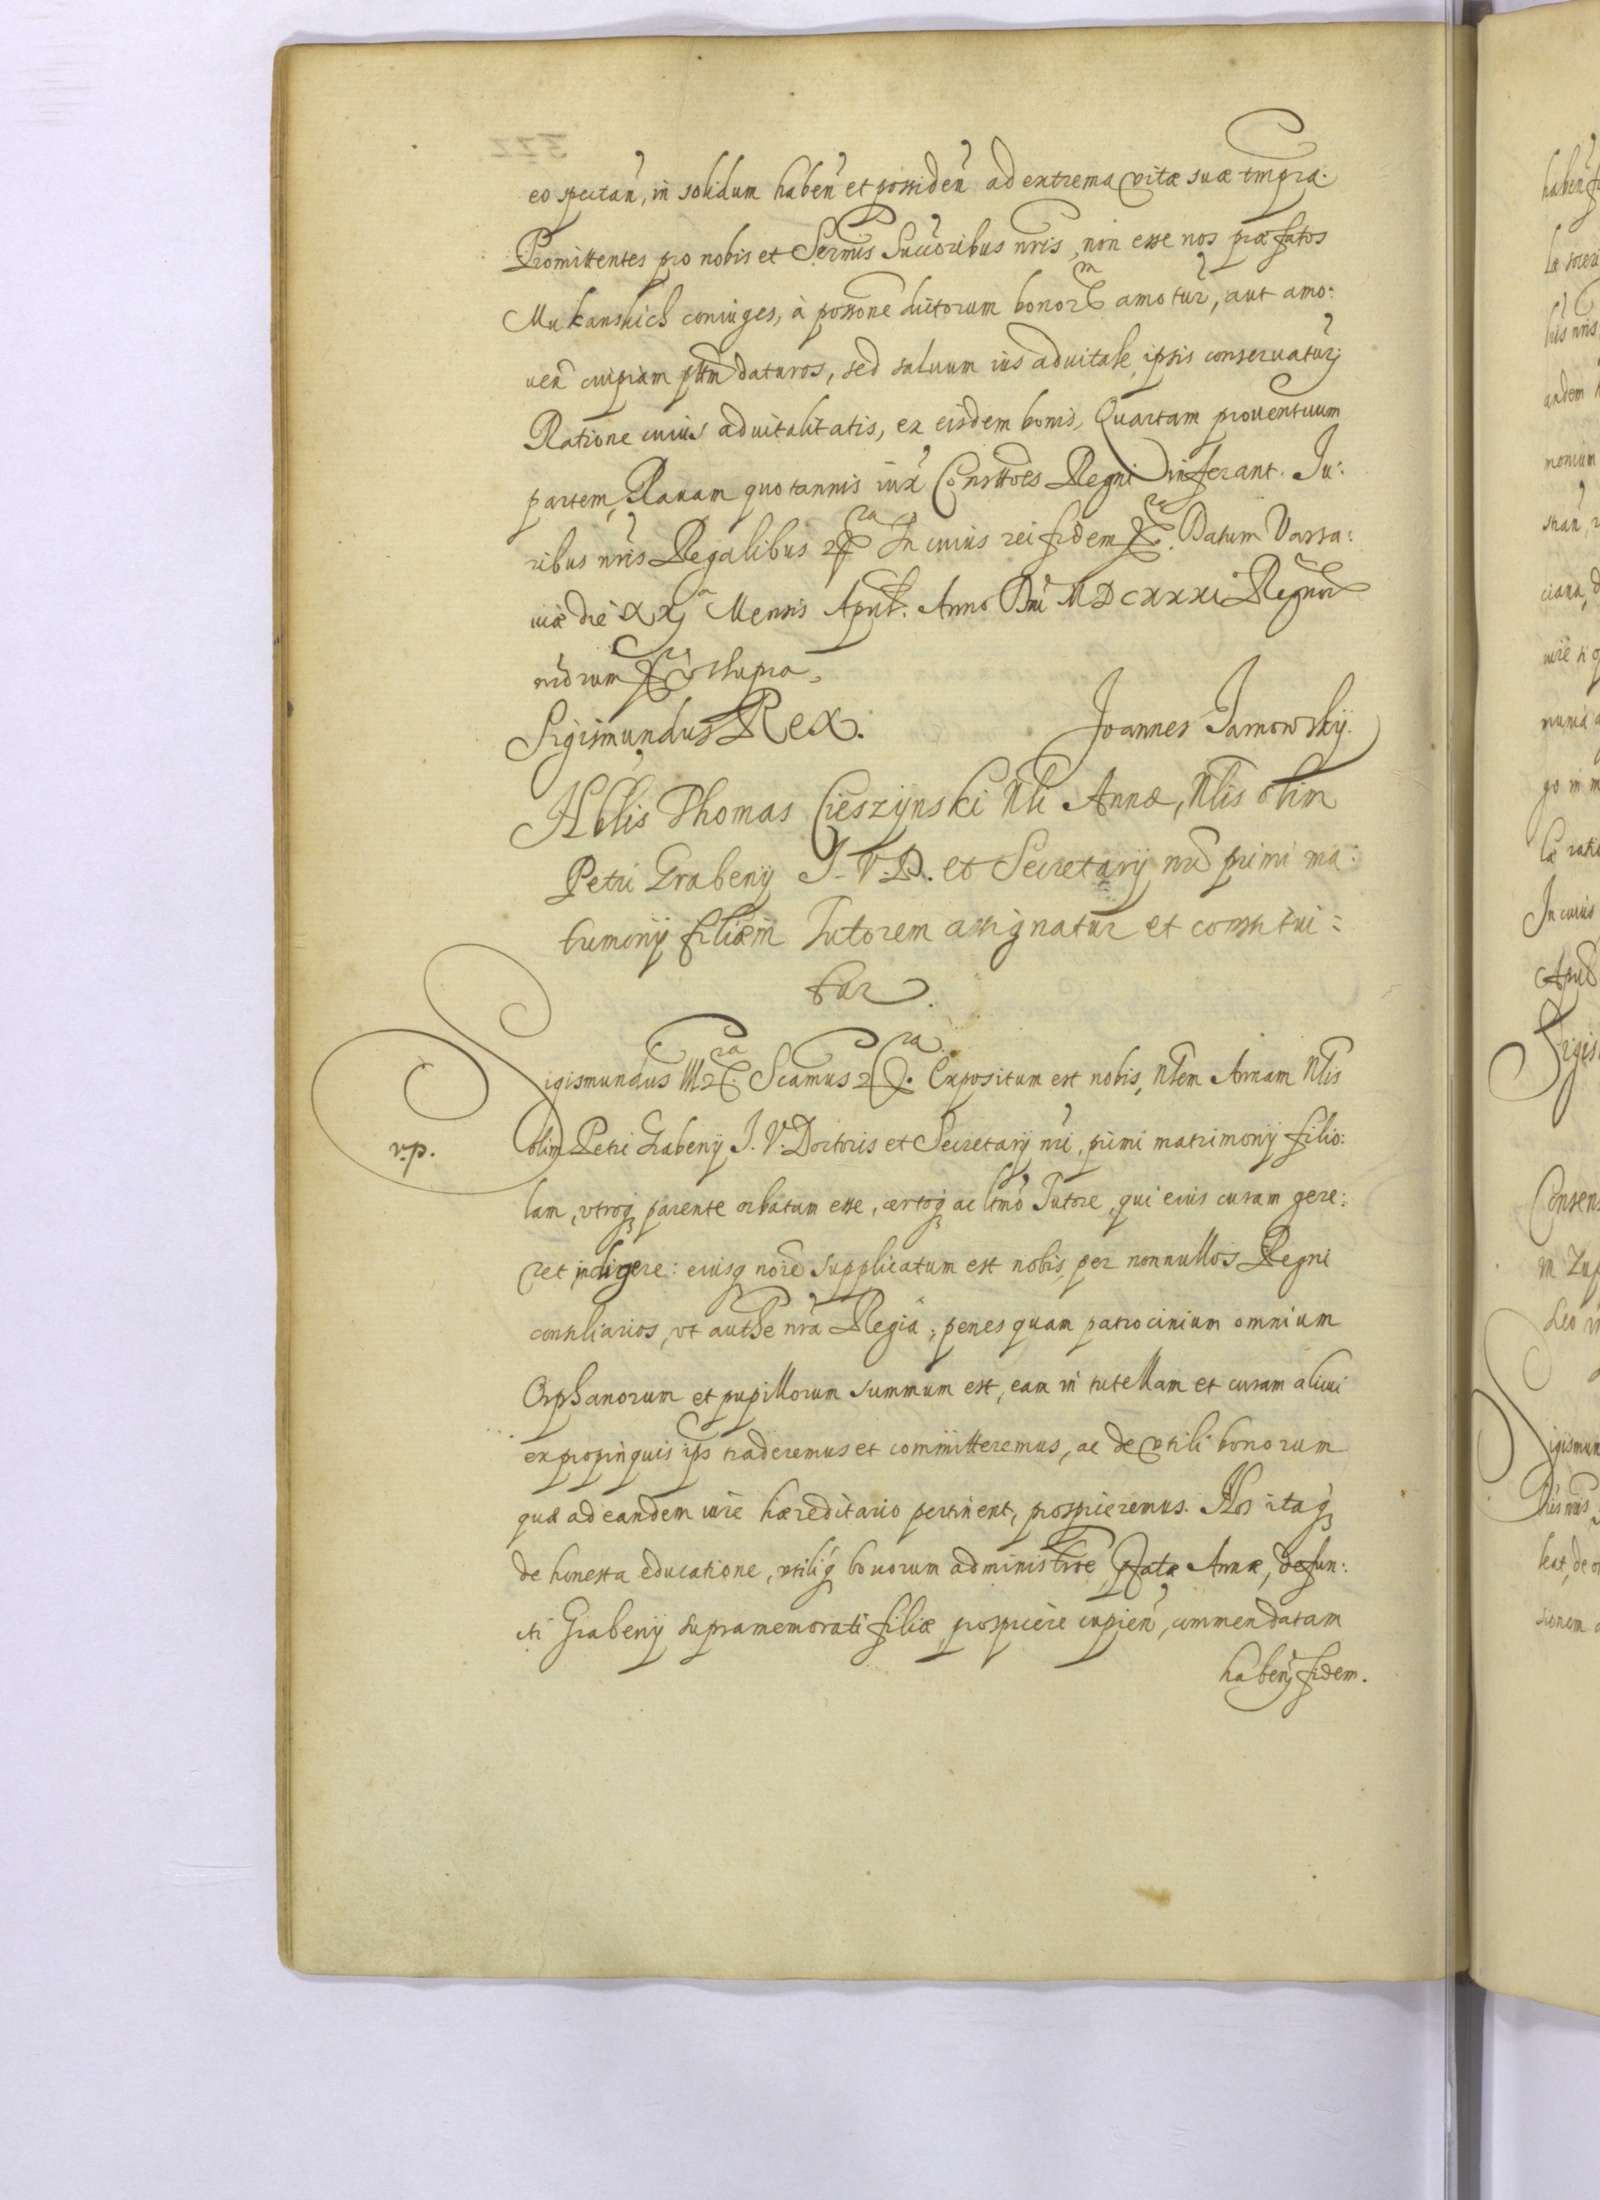 eo spectan̄, in solidum haben̄ et possiden̄ ad extrema vitæ suæ tmpra.
Promittentes pro nobis et Sermis Succoribus nris, non esse nos præfatos
Mukanskich coniuges, à possone dictorum bonorm amotur, aut amo:
uen̄ cuipiam pttm daturos, sed saluum ius aduitale, ipsis conseruatur;
Ratione cuius aduitalitatis, ex eisdem bonis, Quartam prouentuum
partem, Rauam quotannis iux Consttoēs Regni inferant. Iu:
ribus nris Regalibus etra In cuius rei fidem etra. Datum Varsa:
uiæ die XXj Mensis April. Anno Dni MDCXXXI Regnor
nrorum etra vt supra.
Sigismundus Rex.
Joannes Tarnowskij.
Nblis Thomas Cieszijnski Nli Annæ, Nlis olim
Petri Grabenij J. V. D. et Secretarij nri primi ma:
trimonij filiæ in Tutorem assignatur et constitui:
tur.
Sigismundus III etra. Scamus etra. Expositum est nobis, Nlem Annam Nlis
v.p.
olim Petri Grabenij J. V. Doctoris et Secretarij nri, primi matrimonij filio:
lam, vtroq parente orbatam esse, certoq ac ltmo Tutore, qui eius curam gere:
ret indigere: eiusq noīe supplicatum est nobis per nonnullos Regni
consiliarios, vt authe nra Regia, penes quam patrocinium omnium
Orphanorum et pupillorum summum est, eam in tutellam et curam alicui
ex propinquis ips traderemus et committeremus, ac de vtili bonorum
quæ ad eandem iure hæreditario pertinent, prospiceremus. Nos itaq
de honesta educatione, vtiliq bonorum administroe, Annæ, defun:
cti Grabenij supramemorati filiæ, prospicere cupien̄, commendatam
haben̄ fidem.